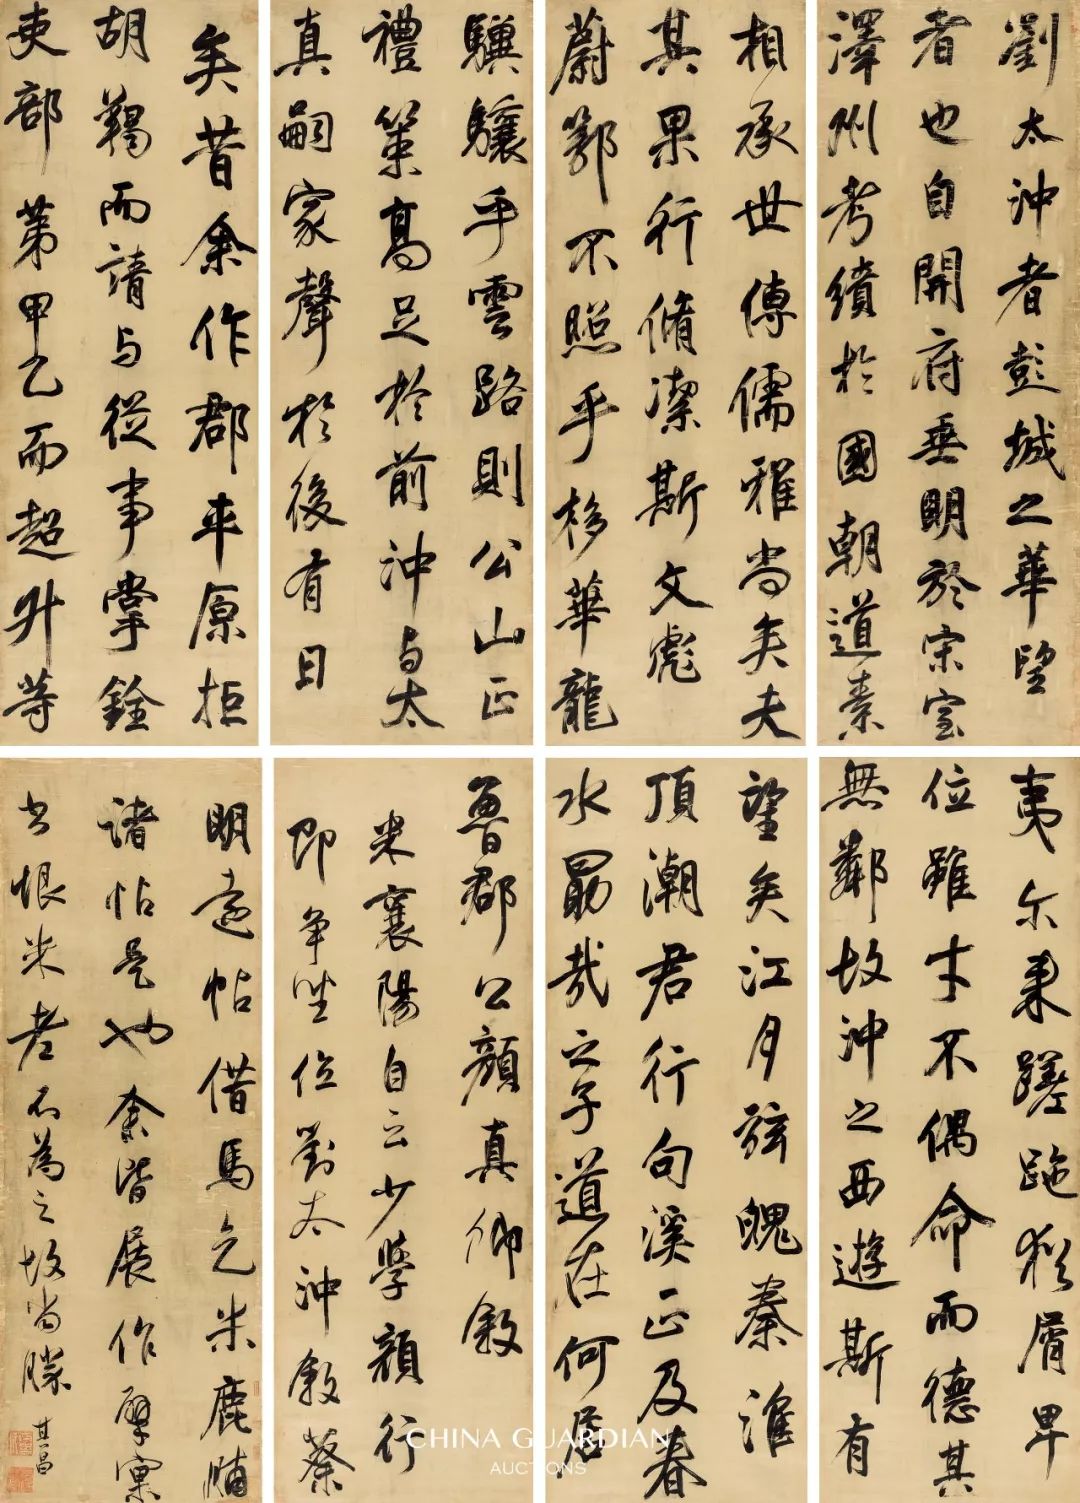 劉太沖者彭城之華望
者也自開府垂明於宋室
澤州考績於國朝道素
相承世傳儒雅尚矣夫
其果行脩潔斯文彪
蔚鄂不照乎移華龍
驥驤乎雲路則公山正
禮策高足於前沖与太
真嗣家聲於後有日
矣昔余作郡平原拒
胡羯而請与從事掌銓
吏部第甲乙而超升等
夷尔来蹉跎猶屑卑
位雖才不偶命而德其
無鄰故沖之西遊斯有
望矣江月弦魄秦淮
頂潮君行句溪正及春
水勗哉之子道在何居
魯郡公顏真卿敘
米襄陽自云少學顏行
即争坐位劉太沖敘蔡
明遠帖借馬乞米鹿脯
諸帖是也余皆展作擘窠
書恨米老不為之故尚勝
其昌
CHINA GUARDIAN
AUCTIONS